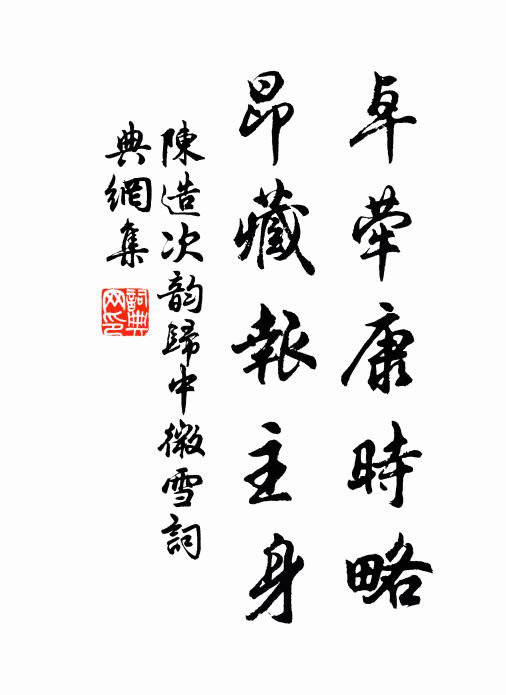 卓犖康時略
昂藏報主身
陳造次韵歸中微雪詞
典網集
詞典網印